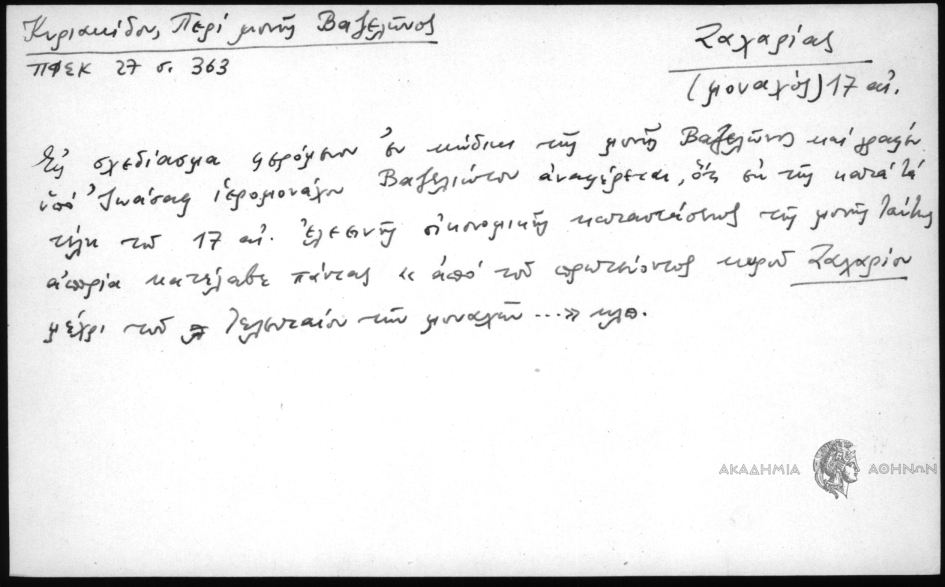 Κυριακίδου, Περί μονῆς Βαζελῶνος
ΠΦΣΚ 27 σ. 363
Ζαχαρίας
(μοναχός) 17 αἰ.
Εἰς σχεδίασμα φερόμενον ἐν κώδικι τῆς μονῆς Βαζελῶνος καί γραφέν
ὑπό Ἰωάσαφ ἱερομονάχου Βαζελιώτου ἀναφέρεται, ὅτι ἐκ τῆς κατά τά
τέλη τοῦ 17 αἰ. ἐλεεινῆς οἰκονομικῆς καταστάσεως τῆς μονῆς ταύτης
ἀπορία κατέλαβε πάντας « ἀπό τοῦ πρωτεύοντος κυροῦ Ζαχαρίου
μέχρι τοῦ τελευταίου τῶν μοναχῶν ...» κλπ.
ΑΚΑΔΗΜΙΑ ΑΘΗΝΩΝ